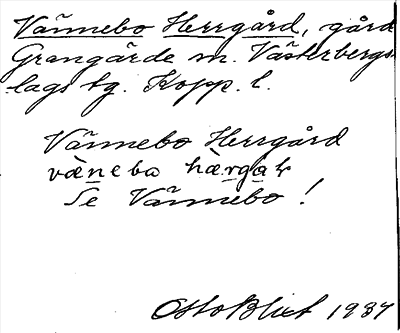 Vännebo Herrgård, gård
Grangärde sn. Västerbergs-
lags tg. Kopp. l.
Vännebo Herrgård
Se Vännebo!
Otto Blixt 1937